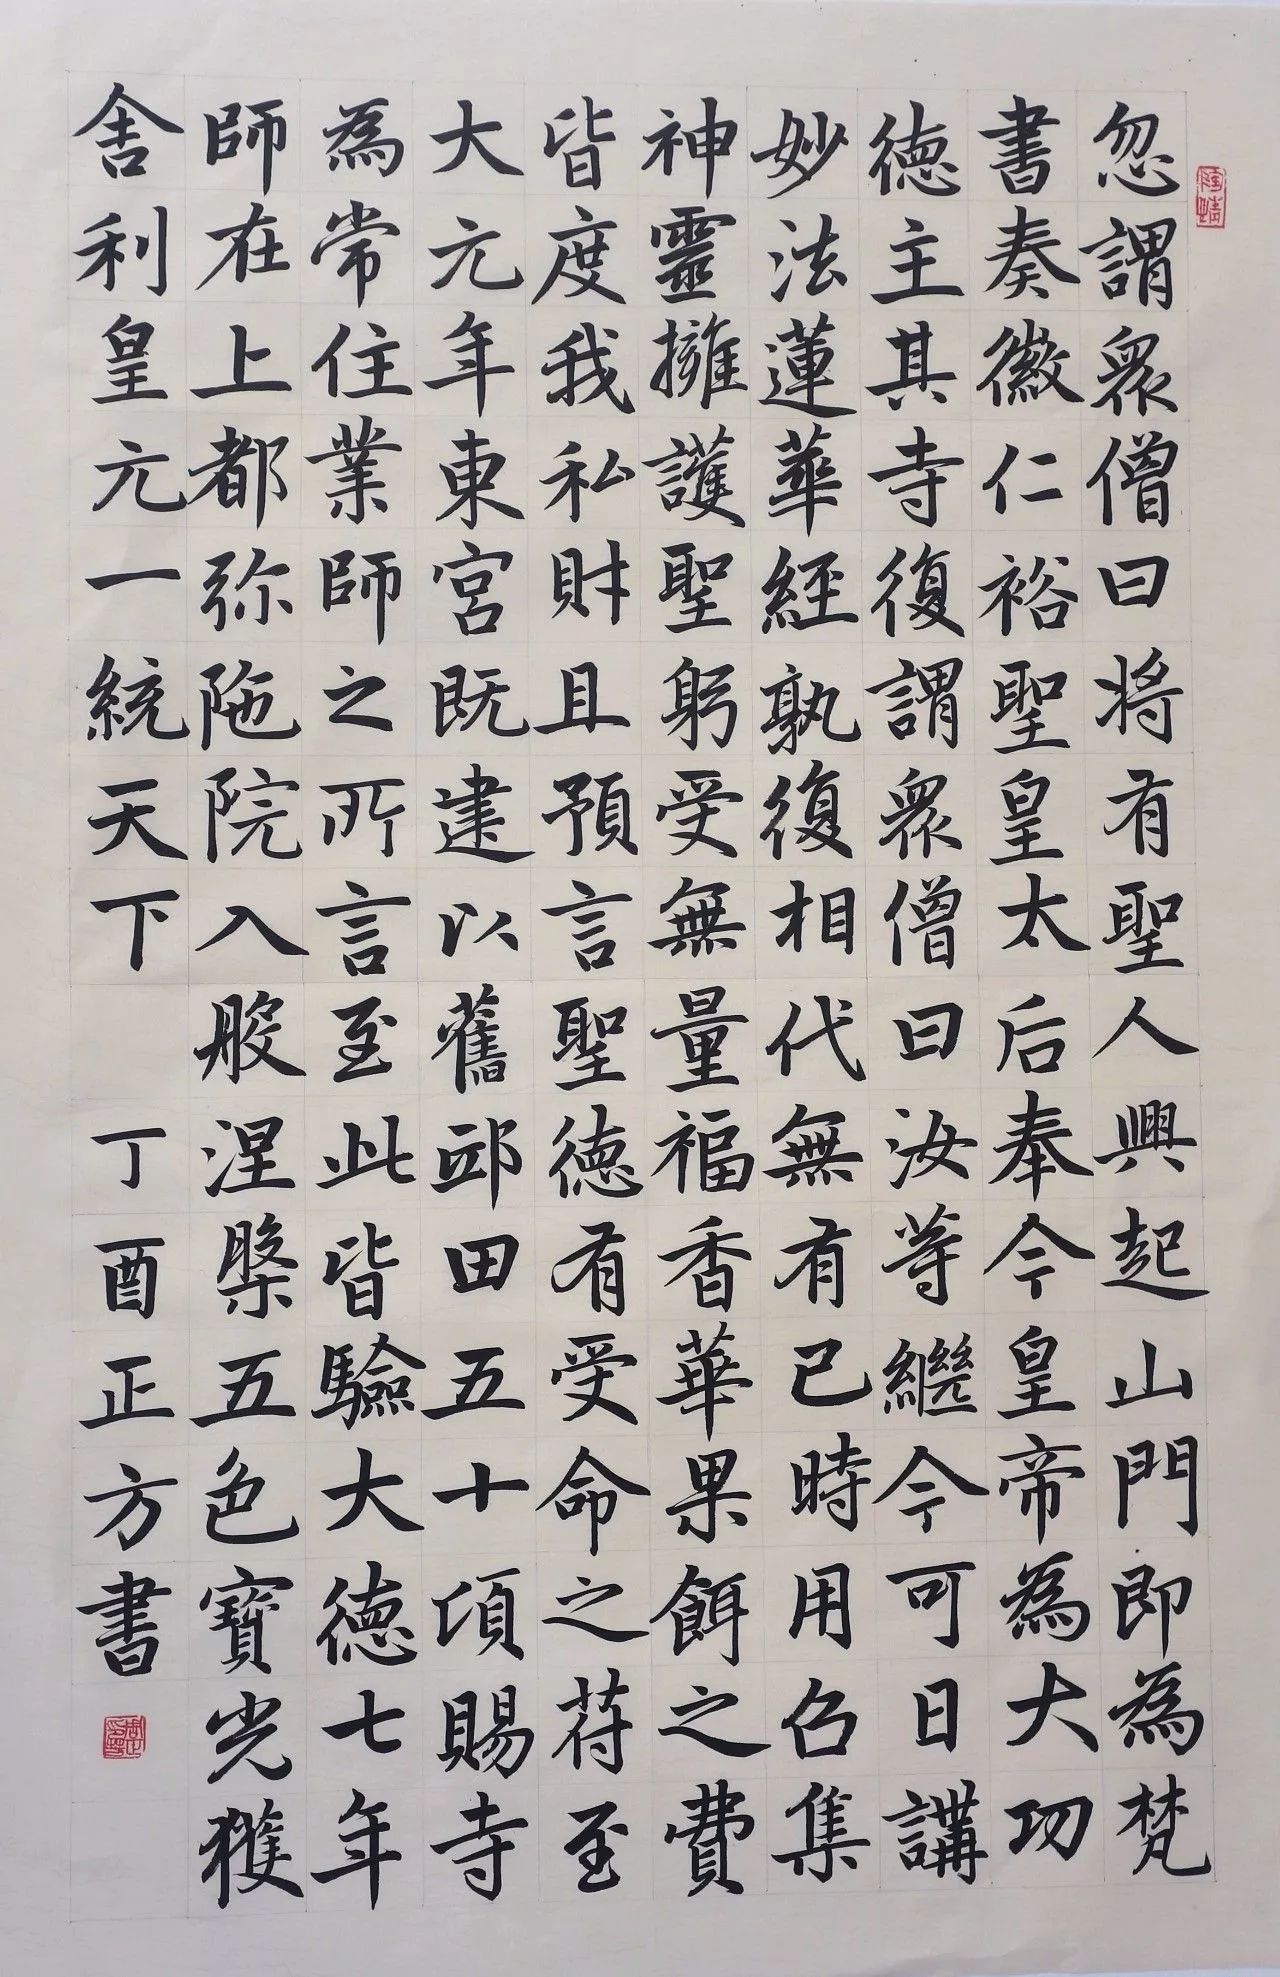 忽謂眾僧曰將有聖人興起山門即為梵
書奏徽仁裕聖皇太后奉今皇帝為大功
德主其寺復謂眾僧曰汝等繼今可日講
妙法蓮華經孰復相代無有已時用召集
神靈擁護聖躬受無量福香華果餌之費
皆度我私財且預言聖德有受命之苻至
大元年東宮既建以舊邸田五十頃賜寺
為常住業師之所言至此皆驗大德七年
師在上都弥陁院入般涅槃五色寶光獲
舍利皇元一統天下 丁酉正方書